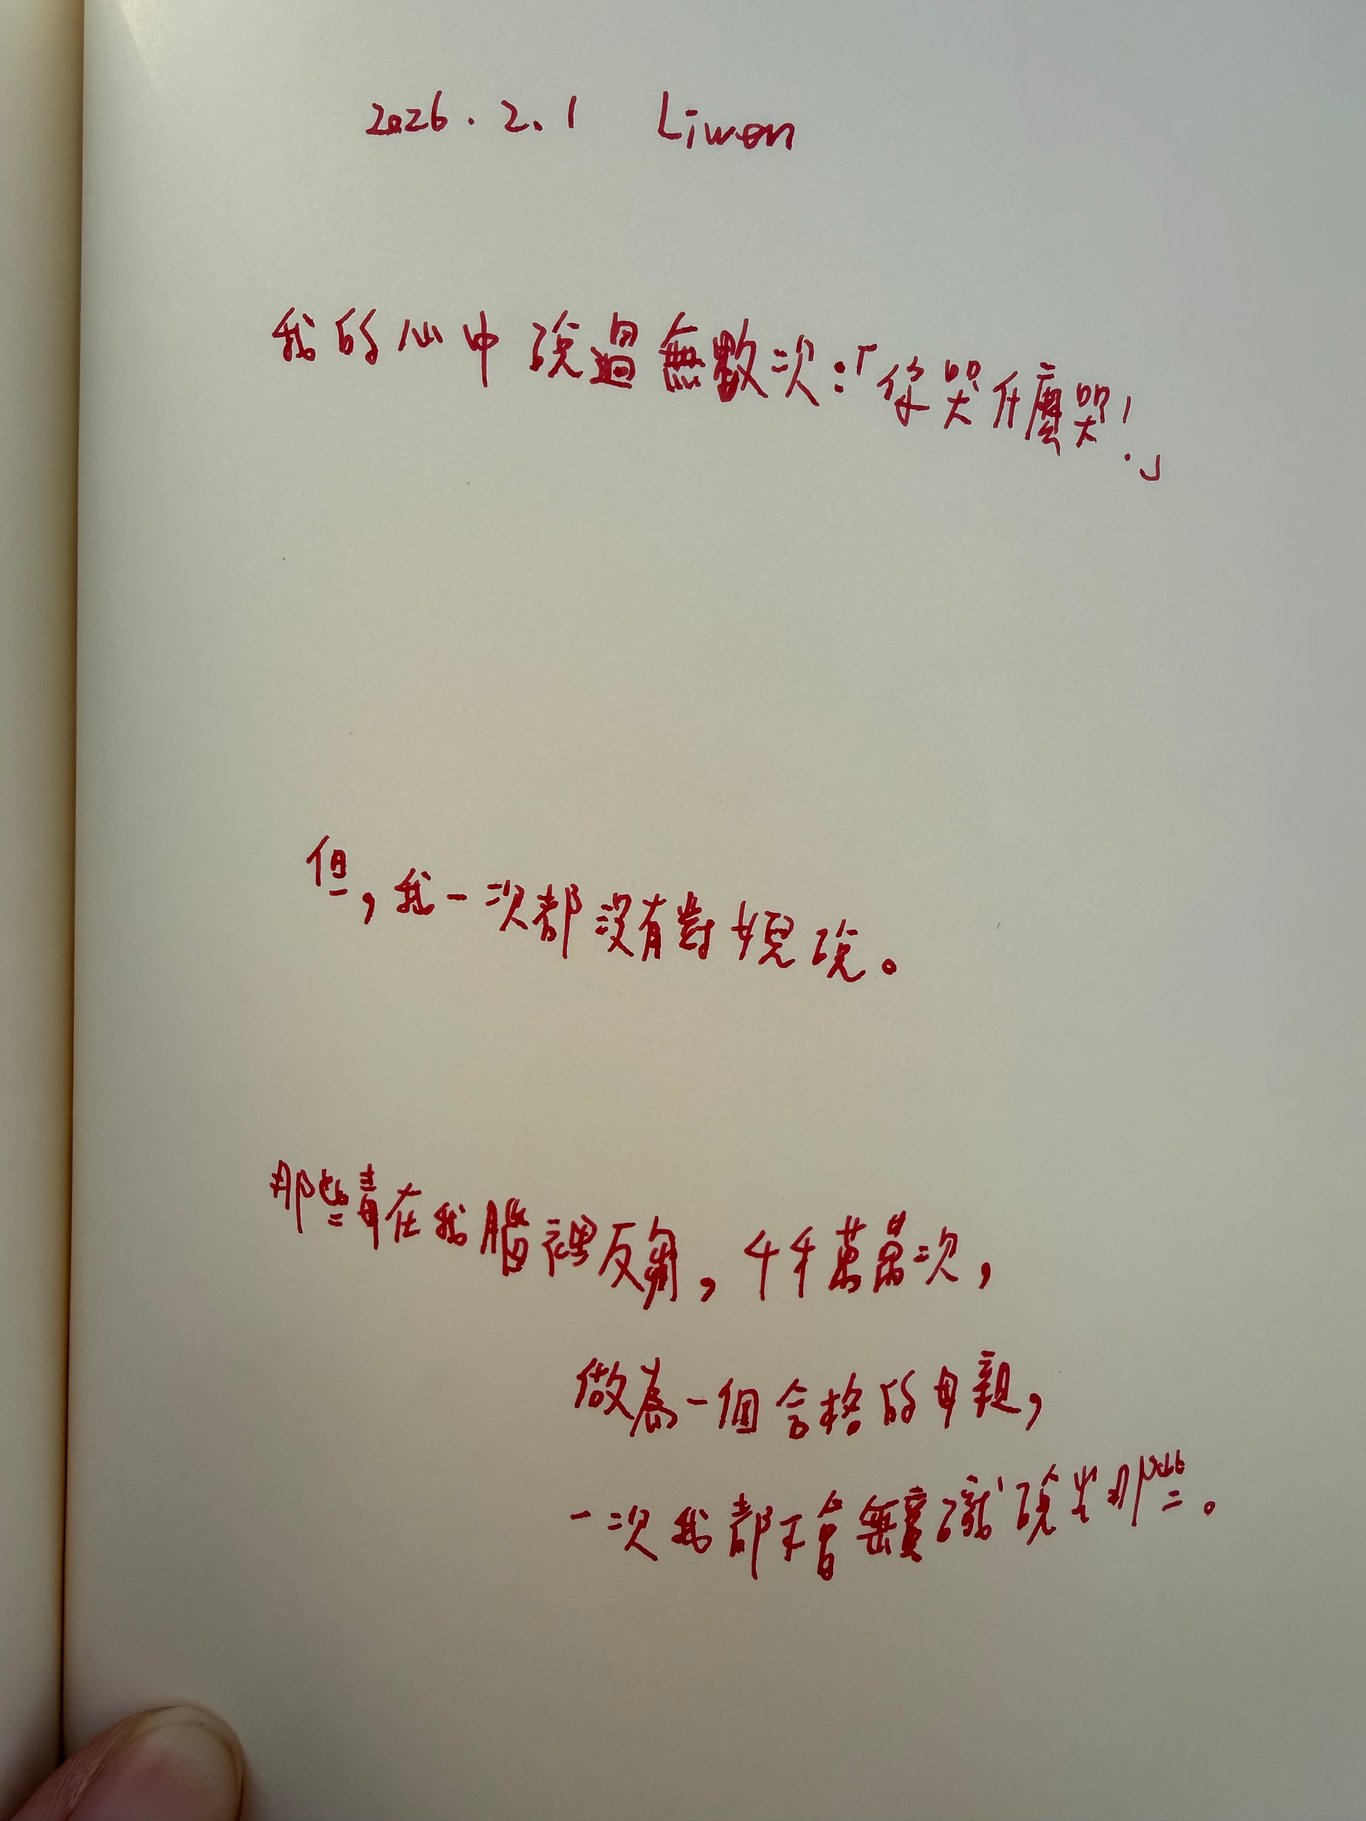 2026.2.1 Liwen
我的心中說過無數次:「你哭什麼哭!」
但,我一次都沒有對妮說。
那些毒在我腦裡反芻,千千萬萬次,
做為一個合格的母親,
一次我都不會無意識說出那些。